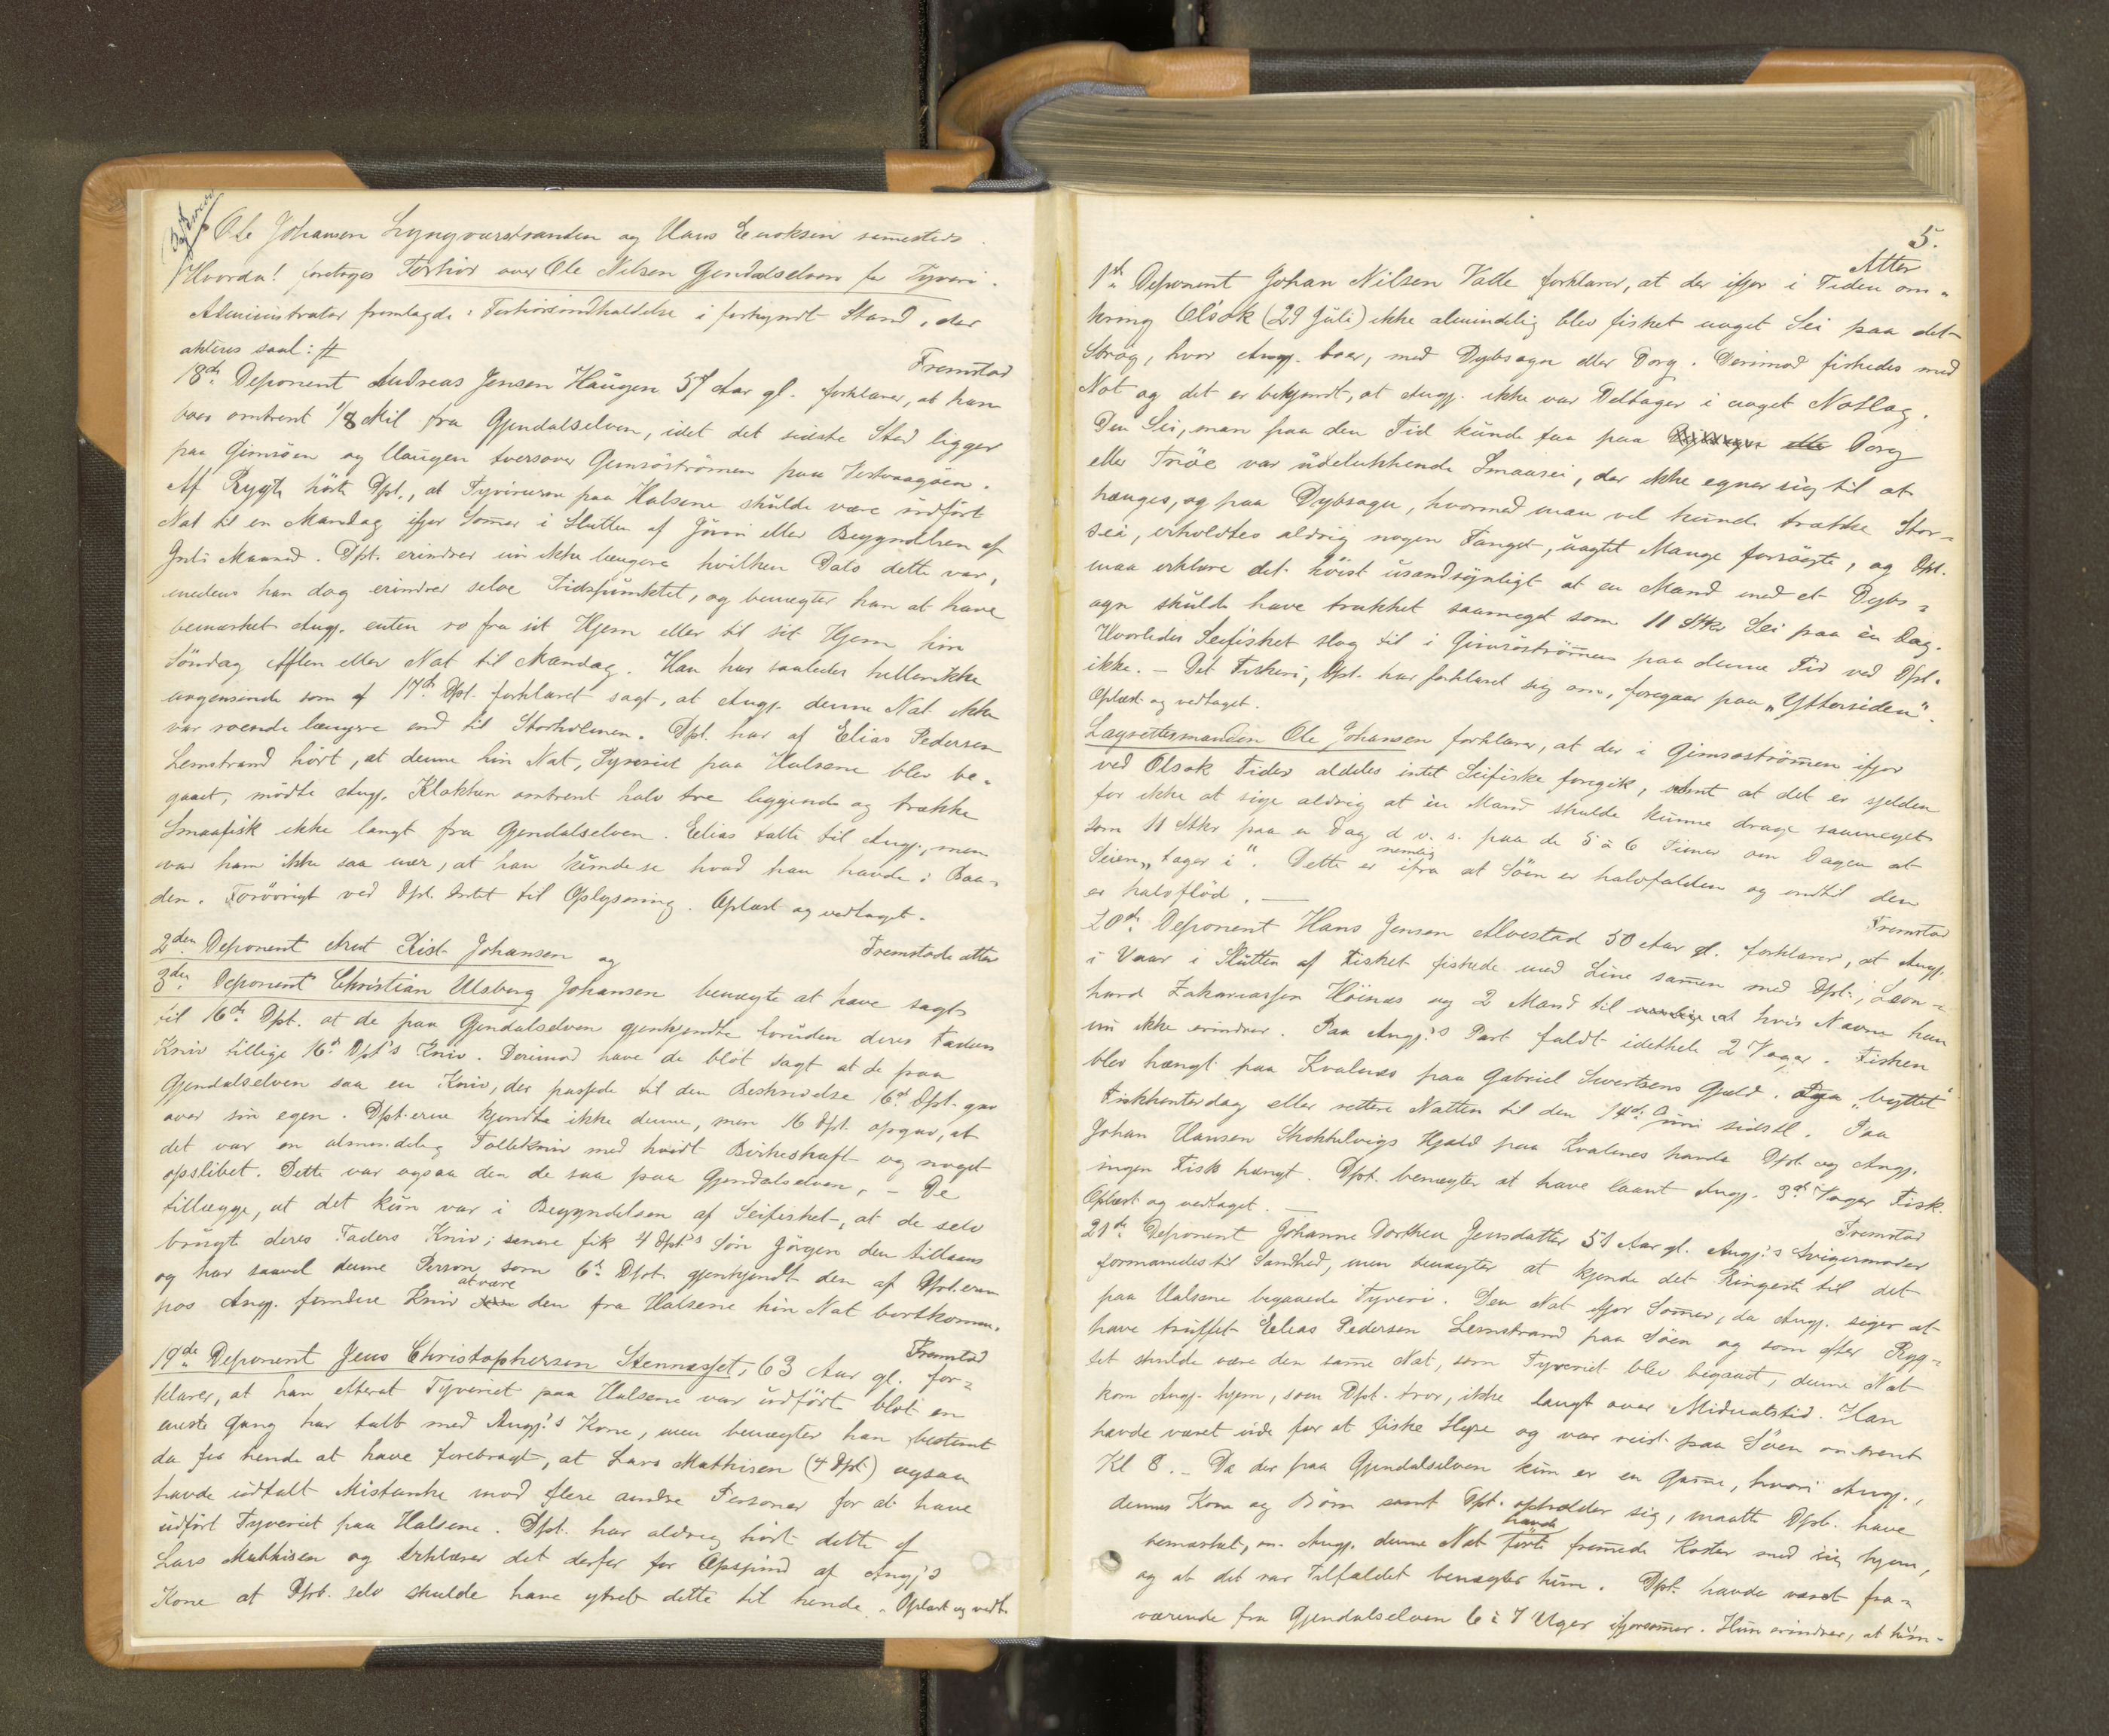 Ole Johansen Lyngværstranden og Hans Enoksen samesteds.
Hvorda! foretoges Forhör over Ole Nilsen Gjendalselven for Tyveri.
Administrator fremlagde: Forhörsindkaldelse i forkyndt Stand, der
akteres saal: #
Fremstod
18de Deponent Andreas Jensen Haugen 57 Aar gl. forklarer, at han
boer omtrent 1/8 Mil fra Gjendalselven, idet det sidste Sted ligger
paa Gimsöen og Haugen tversover Gimsöströmen paa Vestvaagöen.
Af Rygte hörte Dpt., at Tyverierne paa Halsene skulde være udfört
Nat til en Mandag ifjor Sommer i Slutten af Juni eller Begyndelsen af
Juli Maaned. Dpt. erindrer nu ikke længere hvilken Dato dette var,
medens han dog erindrer selve Tidspunktet, og benægter han at have
bemærket Angj. enten ro fra sit Hjem eller til sit Hjem hin
Söndag Aften eller Nat til Mandag. Han har saaledes heller ikke
nogensinde som af 17de Dpt. forklaret sagt, at Angj. denne Nat ikke
var roende længere end til Storholmen. Dpt. har af Elias Pedersen
Lemstrand hört, at denne hin Nat, Tyveriet paa Halsene blev be-
gaaet, mödte Angj. Klokken omtrent halv tre liggende og trække
Smaafisk ikke langt fra Gjendalselven. Elias talte til Angj., men
var ham ikke saa nær, at han kunde se hvad han havde i Baa-
den. Forövrigt ved Dpt. Intet til Oplysning. Oplæst og vedtaget.
Fremstode atter
2den Deponent Knut Kist. Johansen og
3die Deponent Christian Ulsberg Johansen benægte at have sagt
til 16de Dpt. at de paa Gjendalselven gjenkjendte foruden deres Faders
Kniv tillige 16de Dpt's Kniv. Derimod have de blot sagt at de paa
Gjendalselven saa en Kniv, der passede til den Beskrivelse 16de Dpt. gav
over sin egen. Dpt.erne kjendte ikke denne, men 16 Dpt. opgav, at
det var en almindelig Tollekniv med hvidt Birkeskaft og noget
opslibet. Dette var ogsaa den de saa paa Gjendalselven. - De
tillægge, at det kun var i Begyndelsen af Seifisket, at de selv
brugt deres Faders Kniv; senere fik 4 Dpt's Sön Jörgen den tillaans
og har saavel denne Person som 6te Dpt. gjenkjendt den af Dpt.erne
hos Angj. fundne Kniv at være den fra Halsene hin Nat bortkomne.
Fremstod
19de Deponent Jens Christophersen Stennæsset, 63 Aar gl. for-
klarer, at han efterat Tyveriet paa Halsene var udfört blot en
eneste Gang har talt med Angj.'s Kone, men benægter han bestemt
da for hende at have forebragt, at Lars Mathisen (4 Dpt) ogsaa
havde udtalt Mistanke mod flere andre Personer for at have
udfört Tyveriet paa Halsene. Dpt. har aldrig hört dette af
Lars Mathisen og erklærer det derfor for Opspind af Angj's
Kone at Dpt. selv skulde have ytret dette til hende. Oplæst og vedt.
5.
Atter
1ste Deponent Johan Nilsen Valle forklarer, at der ifjor i Tiden om-
kring Olsok (29 Juli) ikke almindelig blev fisket noget Sei paa det
Strög, hvor Angj. boer, med Dybsagn eller Dorg. Derimod fiskedes med
Not og det er bekjendt, at Angj. ikke var Deltager i noget Notlag.
Den Sei, man paa den Tid kunde faa paa Dorg
eller Triöe var udelukkende Smaasei, der ikke egner sig til at
hænges, og paa Dybsagn, hvormed man vel kunde trække Stor-
sei, erholdtes aldrig nogen Fangst, uagtet Mange forsögte, og Dpt.
maa erklære det höist usandsynligt at en Mand med et Dybs-
agn skulde have trukket saameget som 11 Stkr Sei paa en Dag.
Hvorledes Seifisket slog til i Gimsöströmmen paa denne Tid ved Dpt.
ikke. - Det Fiskeri, Dpt. har forklaret sig om, foregaar paa „Yttersiden".
Oplæst og vedtaget.
Lagrettesmanden Ole Johansen forklarer, at der i Gimsöströmmen ifjor
ved Olsok Tider aldeles intet Seifiske foregik, samt at det er sjelden
for ikke at sige aldrig at en Mand skulde kunne drage saameget
som 11 Stkr paa en Dag d. v. s. paa de 5 à 6 Timer om Dagen at
Seien „tager i". Dette er nemlig ifra at Söen er halvfalden og indtil den
er halvflöd. —
Fremstod
20de Deponent Hans Jensen Alvestad 50 Aar gl. forklarer, at Angj.
i Vaar i Slutten af Fisket fiskede med Line sammen med Dpt., Leon-
hard Zakariassen Höinæs og 2 Mand til hvis Navne han
nu ikke erindrer. Paa Angj.'s Part faldt idethele 2 Voger. Fisken
blev hængt paa Kvalnæs paa Gabriel Sivertsens Gjæld. „byttet"
Fiskhenterdag eller rettere Natten til den 14de Juni sidstl. Paa
Johan Hansen Skokkelvigs Hjæld paa Kvalnes havde Dpt. og Angj.
ingen Fisk hængt. Dpt. benægter at have laant Angj. 3de Voger Fisk.
Oplæst og vedtaget. —
Fremstod
21de Deponent Johanne Dorthea Jensdatter 51 Aar gl. Angj.'s Svigermoder
formanedes til Sandhed, men benægter at kjende det Ringeste til det
paa Halsene begaaede Tyveri. Den Nat ifjor Sommer, da Angj. siger at
have truffet Elias Pedersen Lemstrand paa Söen og som efter Ryg-
tet skulde være den samme Nat, som Tyveriet blev begaaet, denne Nat
kom Angj. hjem, som Dpt. tror, ikke langt over Midnatstid. Han
havde været ude for at fiske Hyse og var reist paa Söen omtrent
Kl 8. - Da der paa Gjendalselven kun er en Gamme, hvori Angj.,
dennes Kone og Börn samt Dpt. opholder sig, maatte Dpt. have
bemærket, om Angj. denne Nat havde fört fremmede Koster med sig hjem,
og at det var Tilfældet benægter hun. Dpt. havde været fra-
værende fra Gjendalselven 6 à 7 Uger ifjorsommer. Hun erindrer, at hun